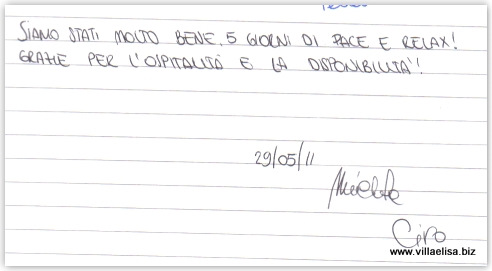 SIAMO STATI MOLTO BENE, 5 GIORNI DI PACE E RELAX!
GRAZIE PER L'OSPITALITÀ E LA DISPONIBILITÀ!
29/05/11
Ciro
www.villaelisa.biz